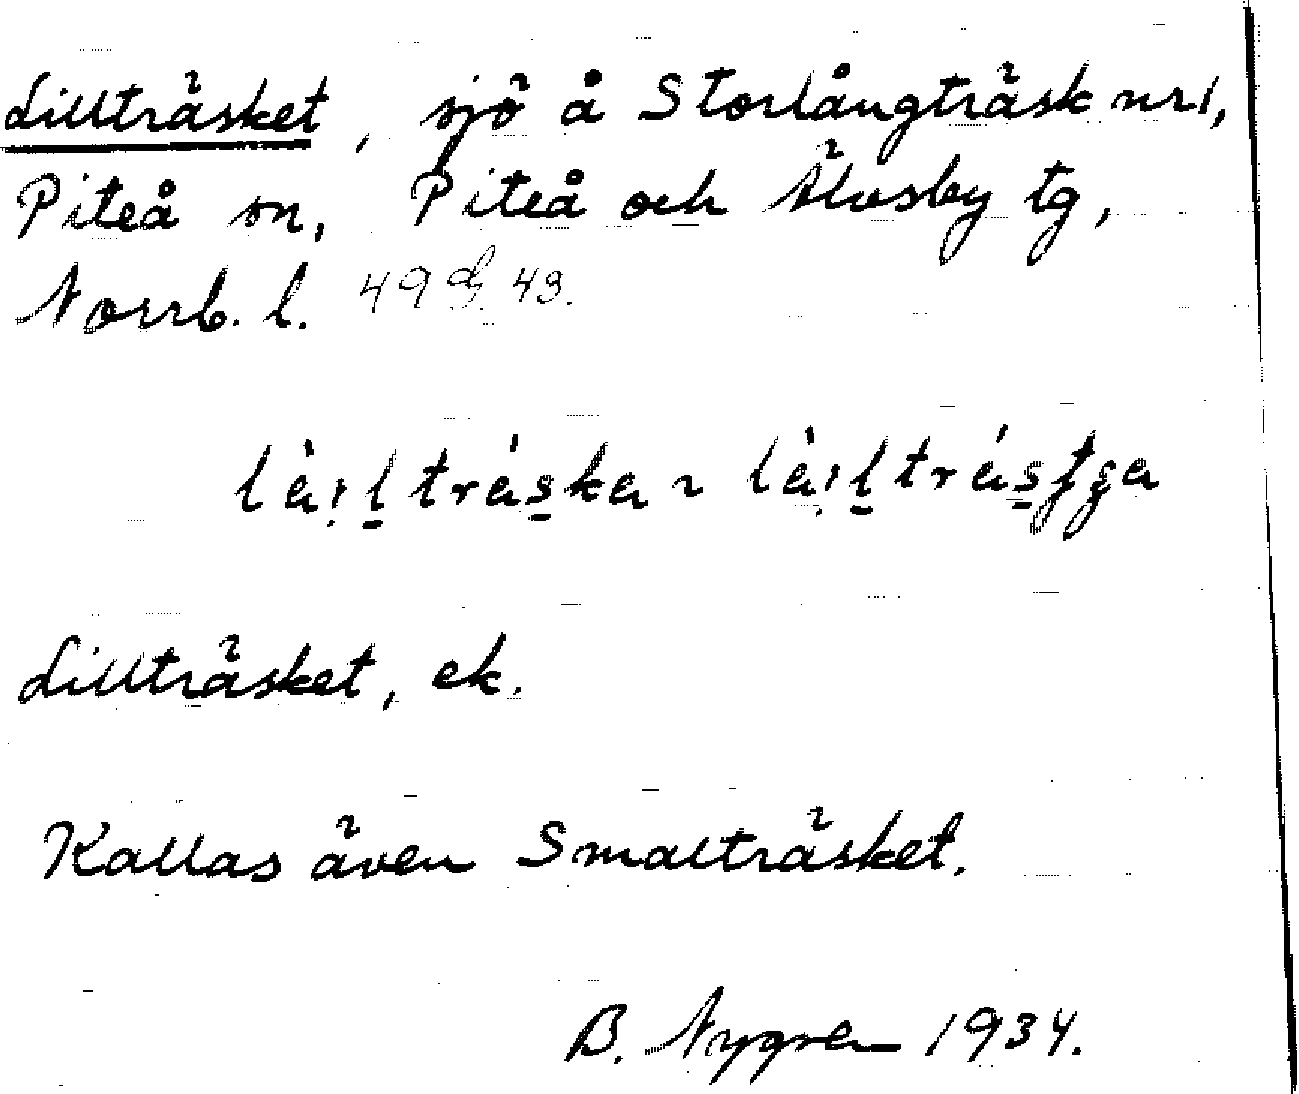 Lillträsket, sjö å Storlångträsk nr 1,
Piteå sn, Piteå och Älvsby tg,
Norrb. l. 49 43.
Lillträsket, ek.
Kallas även Smalträsket.
B. Nygren 1934.